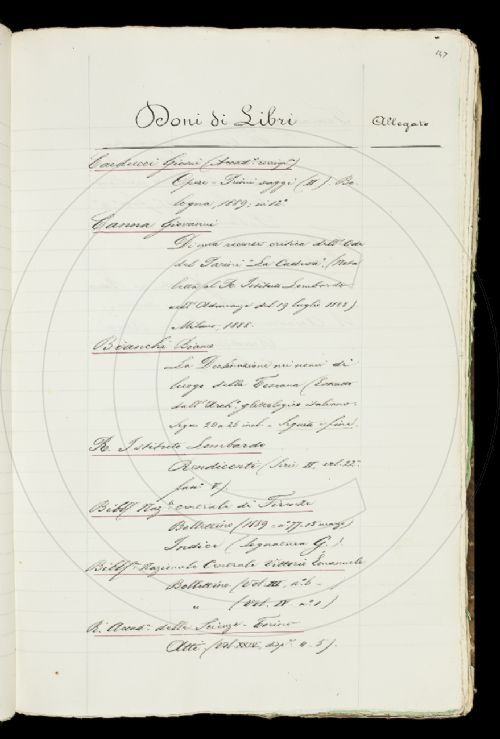 147
Doni di Libri
Allegato
Carducci Giosuè (Accad.º corrisp.)
Opere - Primi saggi (III). Bo-
logna, 1889; in 12º
Canna Giovanni
Di una recensione critica dell'Ode
del Parini "La Caduta". (Nota
letta al R. Istituto Lombardo
nell'Adunanza del 19 luglio 1888)
Milano, 1888.
Bianchi Bianco
La Declinazione nei nomi di
luogo della Toscana (Estratto
dall'Arch.º glottologico italiano -
R. Istituto Lombardo
Rendiconti (Serie II, vol. 22º
fasc. V)
Bibl.ª Naz.le centrale di Firenze
Bollettino (1889 - nº 77. 15 marzo)
Indice (Segnatura G.)
Bibl.ª Nazionale Centrale Vittorio Emanuele
Bollettino (Vol. III, nº 6 -
" (Vol. IV nº 1)
R. Accad.ª delle Scienze - Torino
Atti (Vol. XXIV, disp.ª 4. 5).